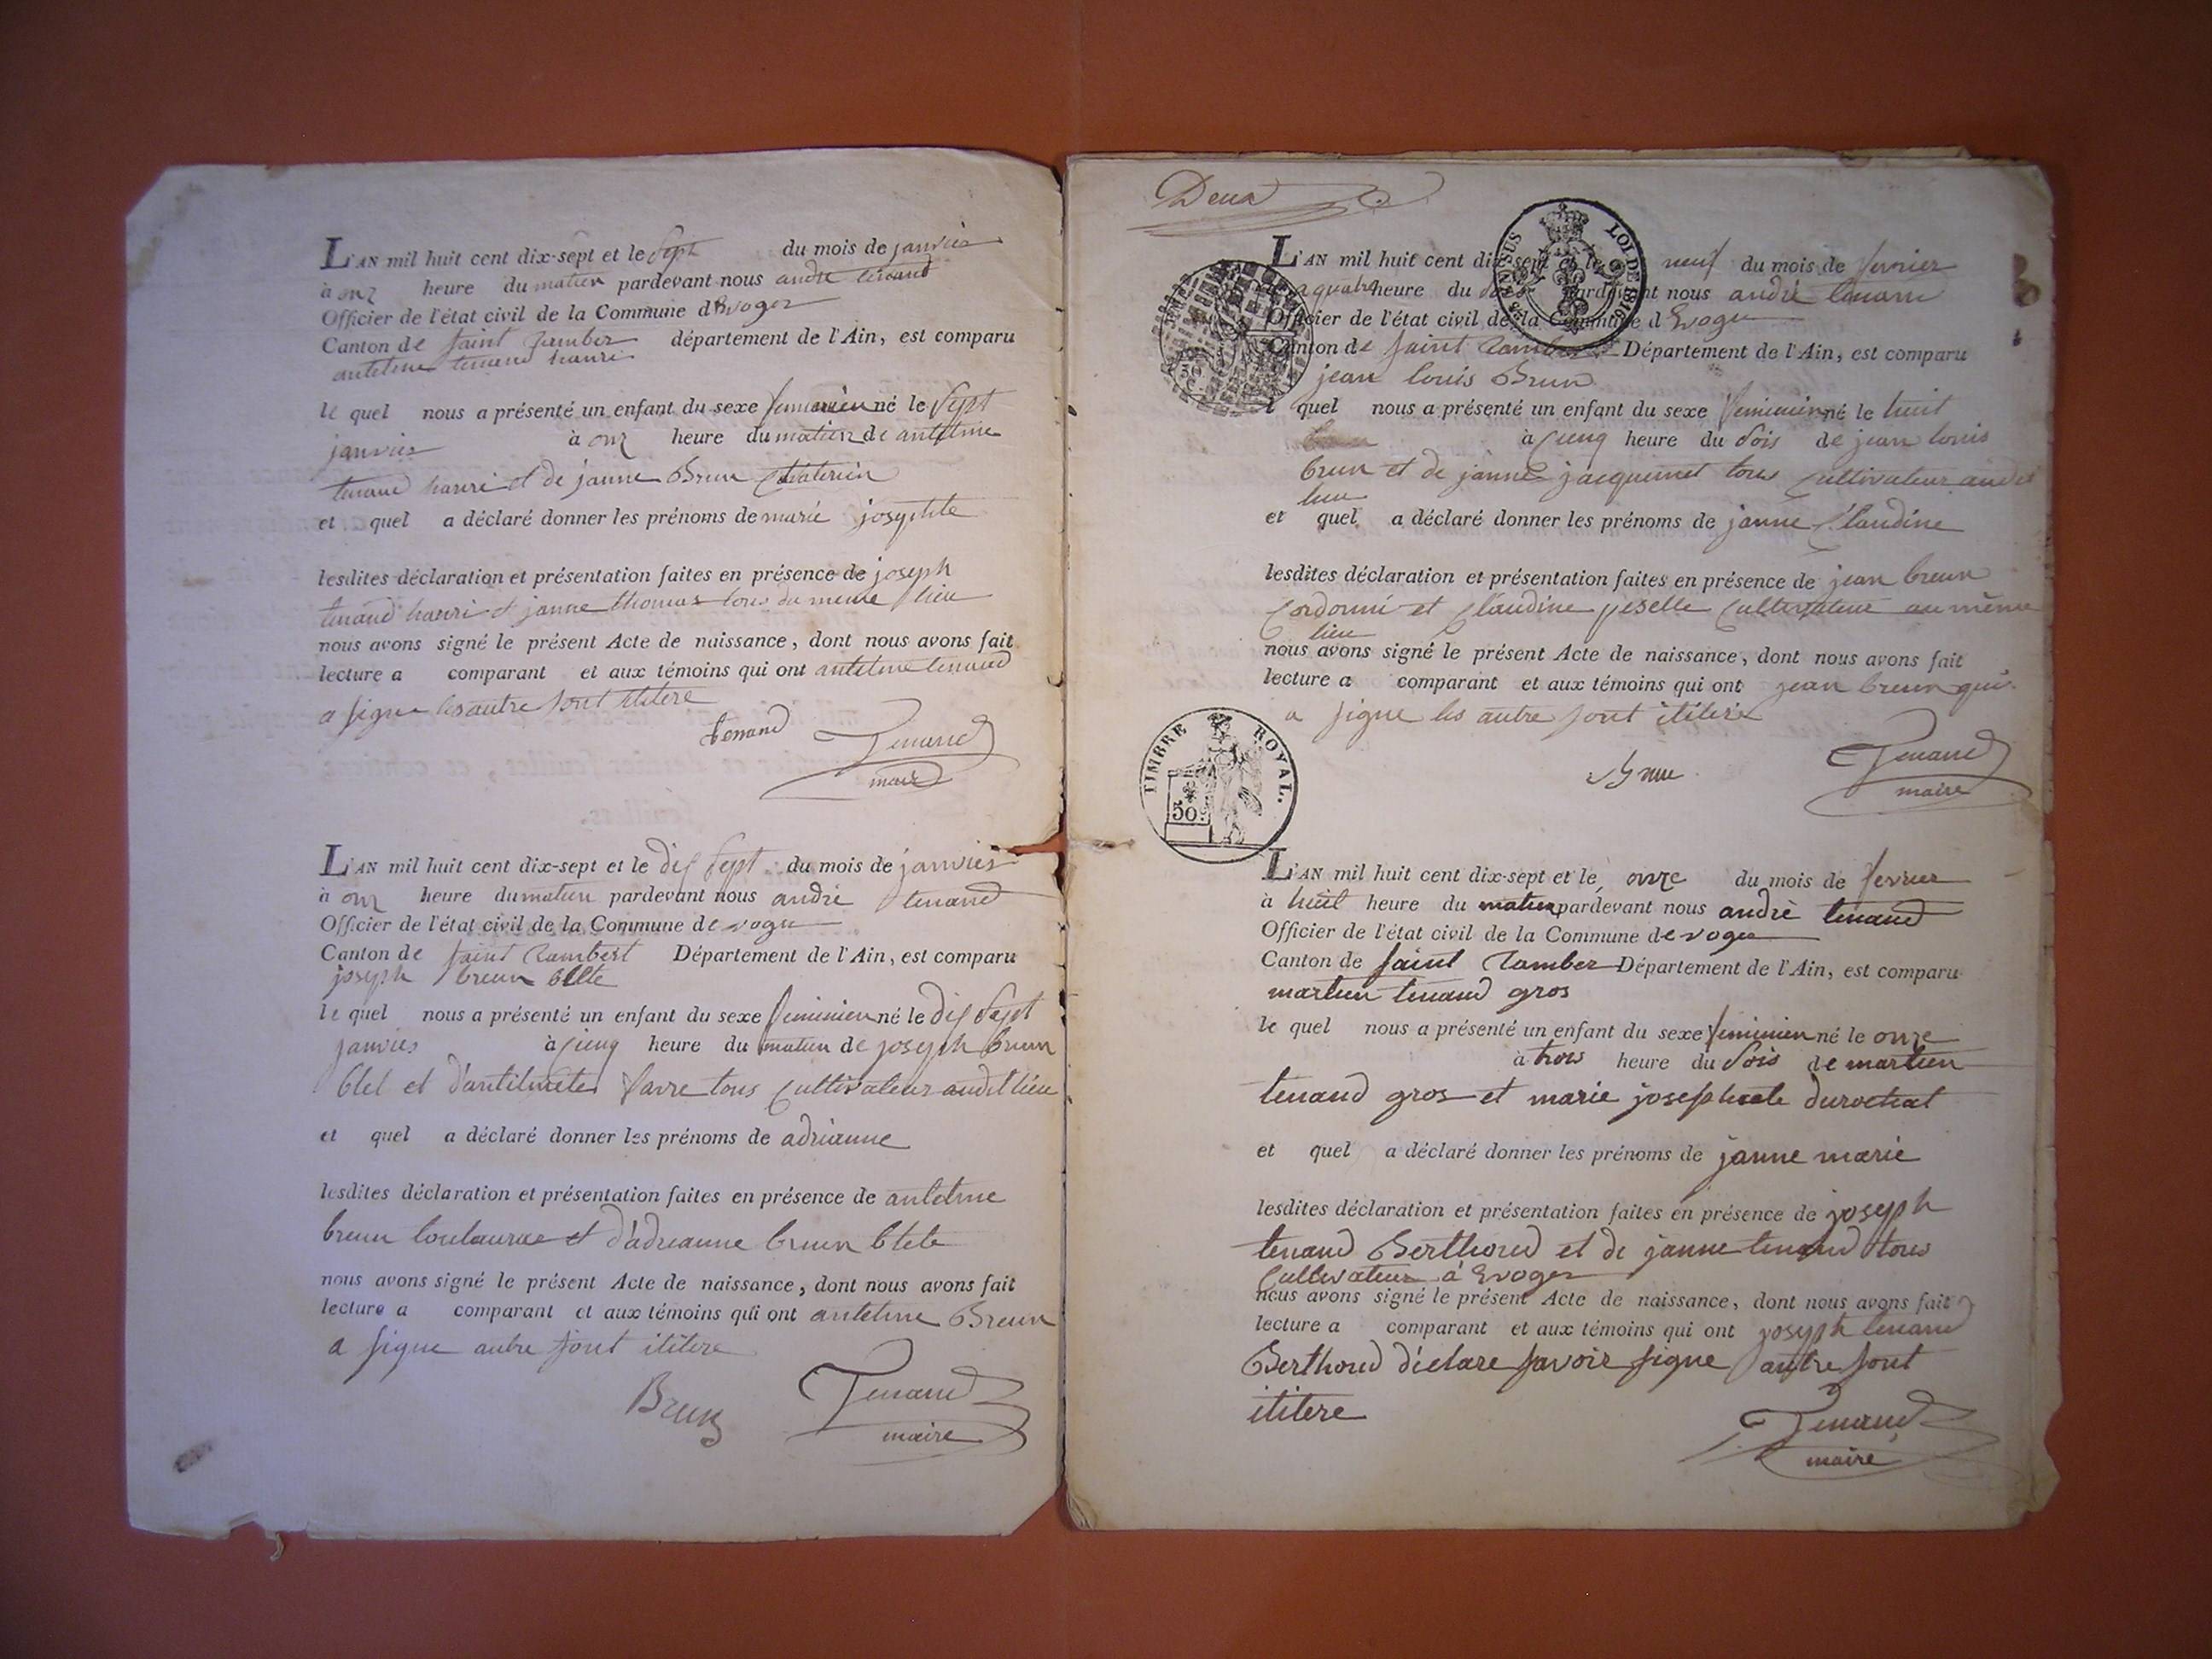 L'AN mil huit cent dix-sept et le sept du mois de janvier
à onz heure du matien pardevant nous andré tenand
Officier de l'état civil de la Commune d'Evoger
Canton de saint Ramber département de l'Ain, est comparu
antelme tenand hanri
le quel nous a présenté un enfant du sexe feminien né le sept
janvier à onz heure du matien de antelme
tenand hanri et de janne Brun
et quel a déclaré donner les prénoms de marie josephte
lesdites déclaration et présentation faites en présence de joseph
tenand hanri et janne thomas tous du meme lieu
nous avons signé le présent Acte de naissance, dont nous avons fait
lecture a comparant et aux témoins qui ont antelme tenand
a signe les autre sont ilitere
tenand Tenand
maire
L'AN mil huit cent dix-sept et le dix sept du mois de janvier
à onz heure du matien pardevant nous andré tenand
Officier de l'état civil de la Commune de voger
Canton de saint Rambert Département de l'Ain, est comparu
joseph breun blete
le quel nous a présenté un enfant du sexe feminien né le dix sept
janvier à cieng heure du matien de joseph breun
blet et d'antelmete favre tous cultivateur audit lieu
et quel a déclaré donner les prénoms de adrianne
lesdites déclaration et présentation faites en présence de antelme
breun et d'adreanne breun blete
nous avons signé le présent Acte de naissance, dont nous avons fait
lecture a comparant et aux témoins qui ont antelme Breun
a signe autre sont ilitere
Brun Tenand
maire
Deux
L'AN mil huit cent dix-sept et le neuf du mois de fevrier
a quatre heure du soir pardevant nous andré tenand
Officier de l'état civil de la Commune d Evoger
Canton de saint Rambert Département de l'Ain, est comparu
jean louis Brun
l quel nous a présenté un enfant du sexe feminien né le huit
à cienq heure du soir de jean louis
brun et de janne jacquemet tous cultivateur audit
lieu
et quel a déclaré donner les prénoms de janne Claudine
lesdites déclaration et présentation faites en présence de jean breun
Cordonni et Claudine peselle cultivateur au même
lieu
nous avons signé le présent Acte de naissance, dont nous avons fait
lecture a comparant et aux témoins qui ont jean breun qui
a signe les autre sont ilitere
Tenand
maire
TIMBRE ROYAL.
50
L'AN mil huit cent dix-sept et le onze du mois de fevrier
à huit heure du matien pardevant nous andrè tenand
Officier de l'état civil de la Commune de voger
Canton de saint Ramber Département de l'Ain, est comparu
martien tenand gros
le quel nous a présenté un enfant du sexe feminien né le onze
à trois heure du soir de martien
tenand gros et marie josephtete durochat
et quel a déclaré donner les prénoms de janne marie
lesdites déclaration et présentation faites en présence de joseph
tenand Berthoud et de janne tenand tous
Cultivateur à Evoger
nous avons signé le présent Acte de naissance, dont nous avons fait
lecture a comparant et aux témoins qui ont joseph tenand
Berthoud déclare savoir signe autre sont
ilitere
Tenand
maire